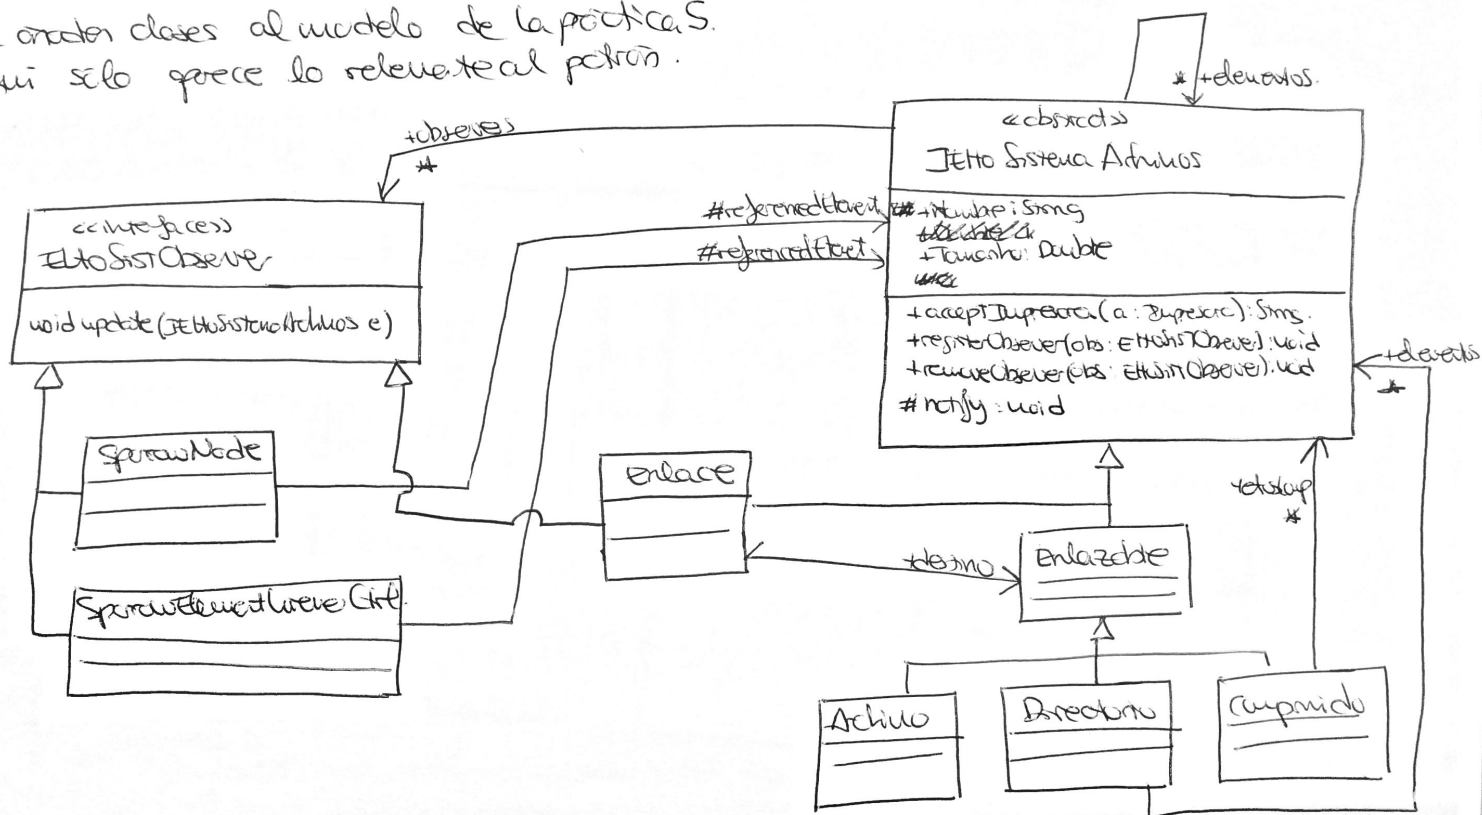 añadir clases al modelo de la práctica 5.
sólo aparece lo relevante al patrón.
* +elementos.
+observers
*
<<abstract>>
IEltoSistemaArchivos
#+Nombre: String
+Tamanho: Double
+acceptImpresora(a: Impresora): String.
+registerObserver(obs: EltoSistObserver): void
+removeObserver(obs: EltoSistObserver): void
#notify: void
<<interface>>
IEltoSistObserver
void update(IEltoSistemaArchivos e)
#referencedElement
#referencedElement
+elementos
*
SparrowNode
Enlace
*
Enlazable
+destino
SparrowElement Ctrl.
Archivo
Directorio
Comprimido